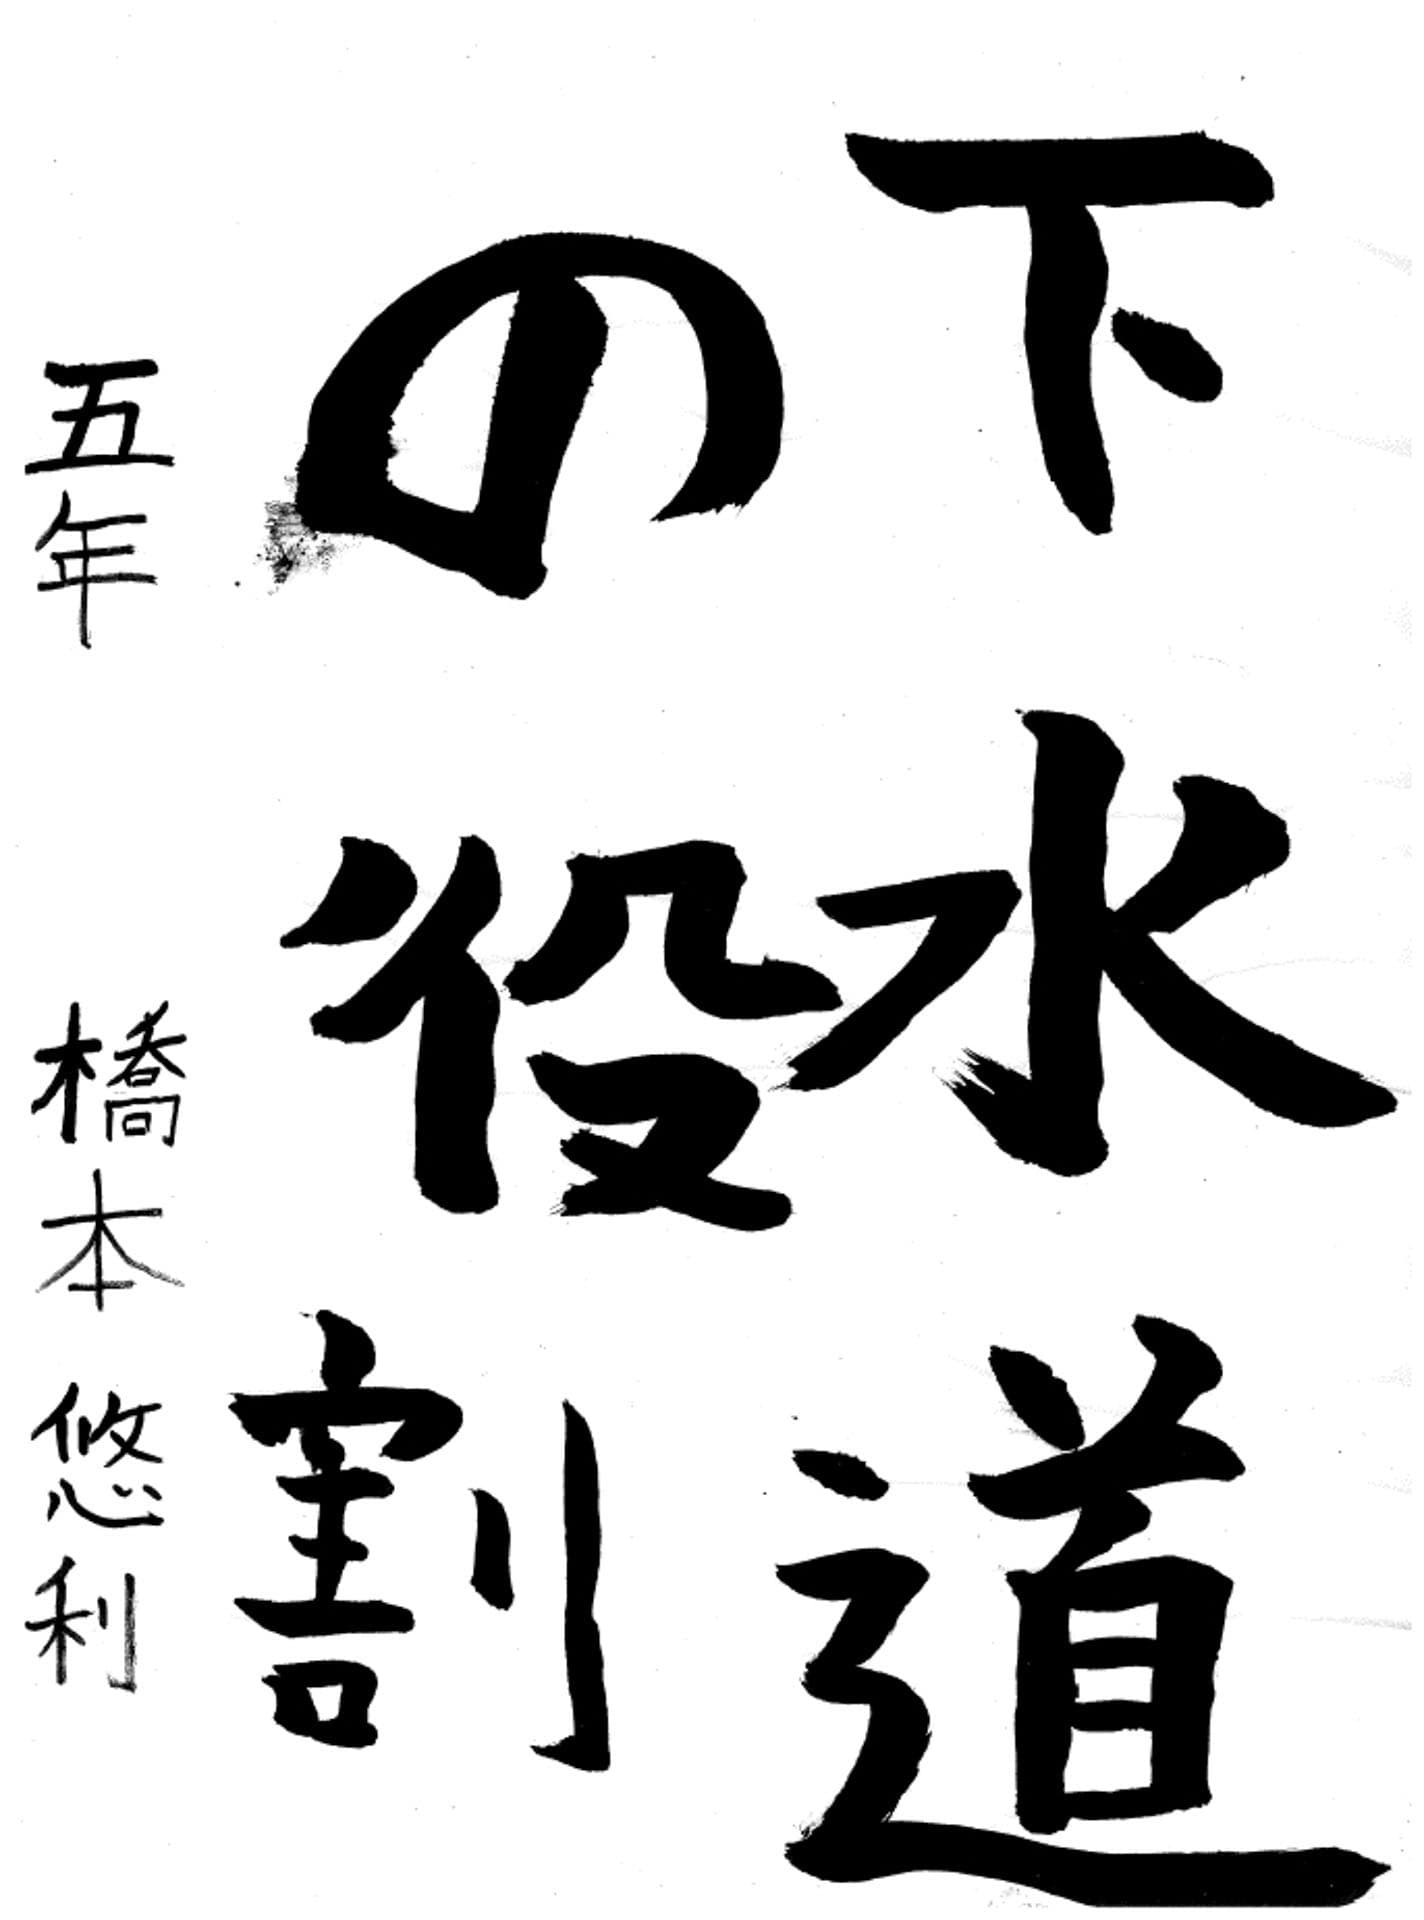 下水道
の役割
五年 橋本悠利